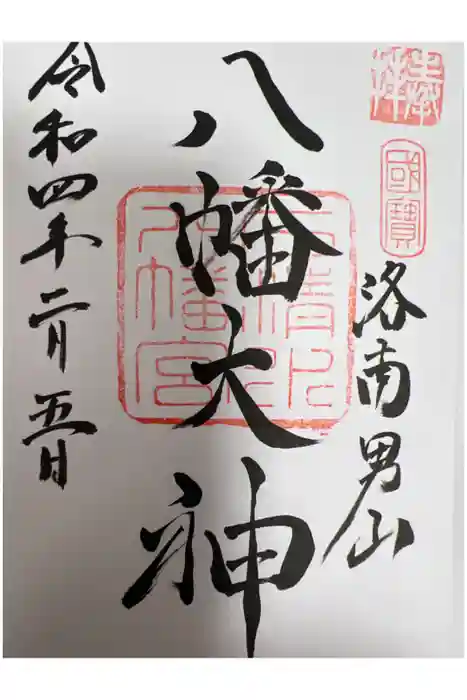 奉拝
國寶
洛南男山
八幡大神
石清水八幡宮
令和四年二月五日